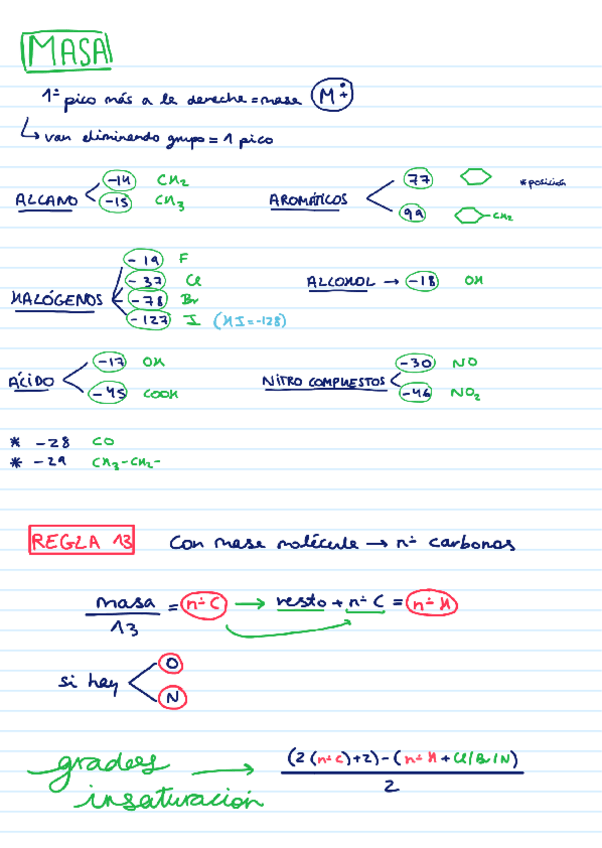 MASA
1º pico más a la derecha = masa M⁺·
↳ van eliminando grupo = 1 pico
ALCANO -14 CH2
-15 CH3
AROMÁTICOS 77 *posición
99 -CH2
HALÓGENOS -19 F
-37 Cl
-78 Br
-127 I (HI=-128)
ALCOHOL → -18 OH
ÁCIDO -17 OH
-45 COOH
NITRO COMPUESTOS -30 NO
-46 NO2
* -28 CO
* -29 CH3-CH2-
REGLA 13 Con masa molécula → nº carbonos
masa / 13 = nº C → resto + nº C = nº H
si hay O
N
grados insaturación → (2(nº C)+2)-(nº H + Cl/Br/N) / 2